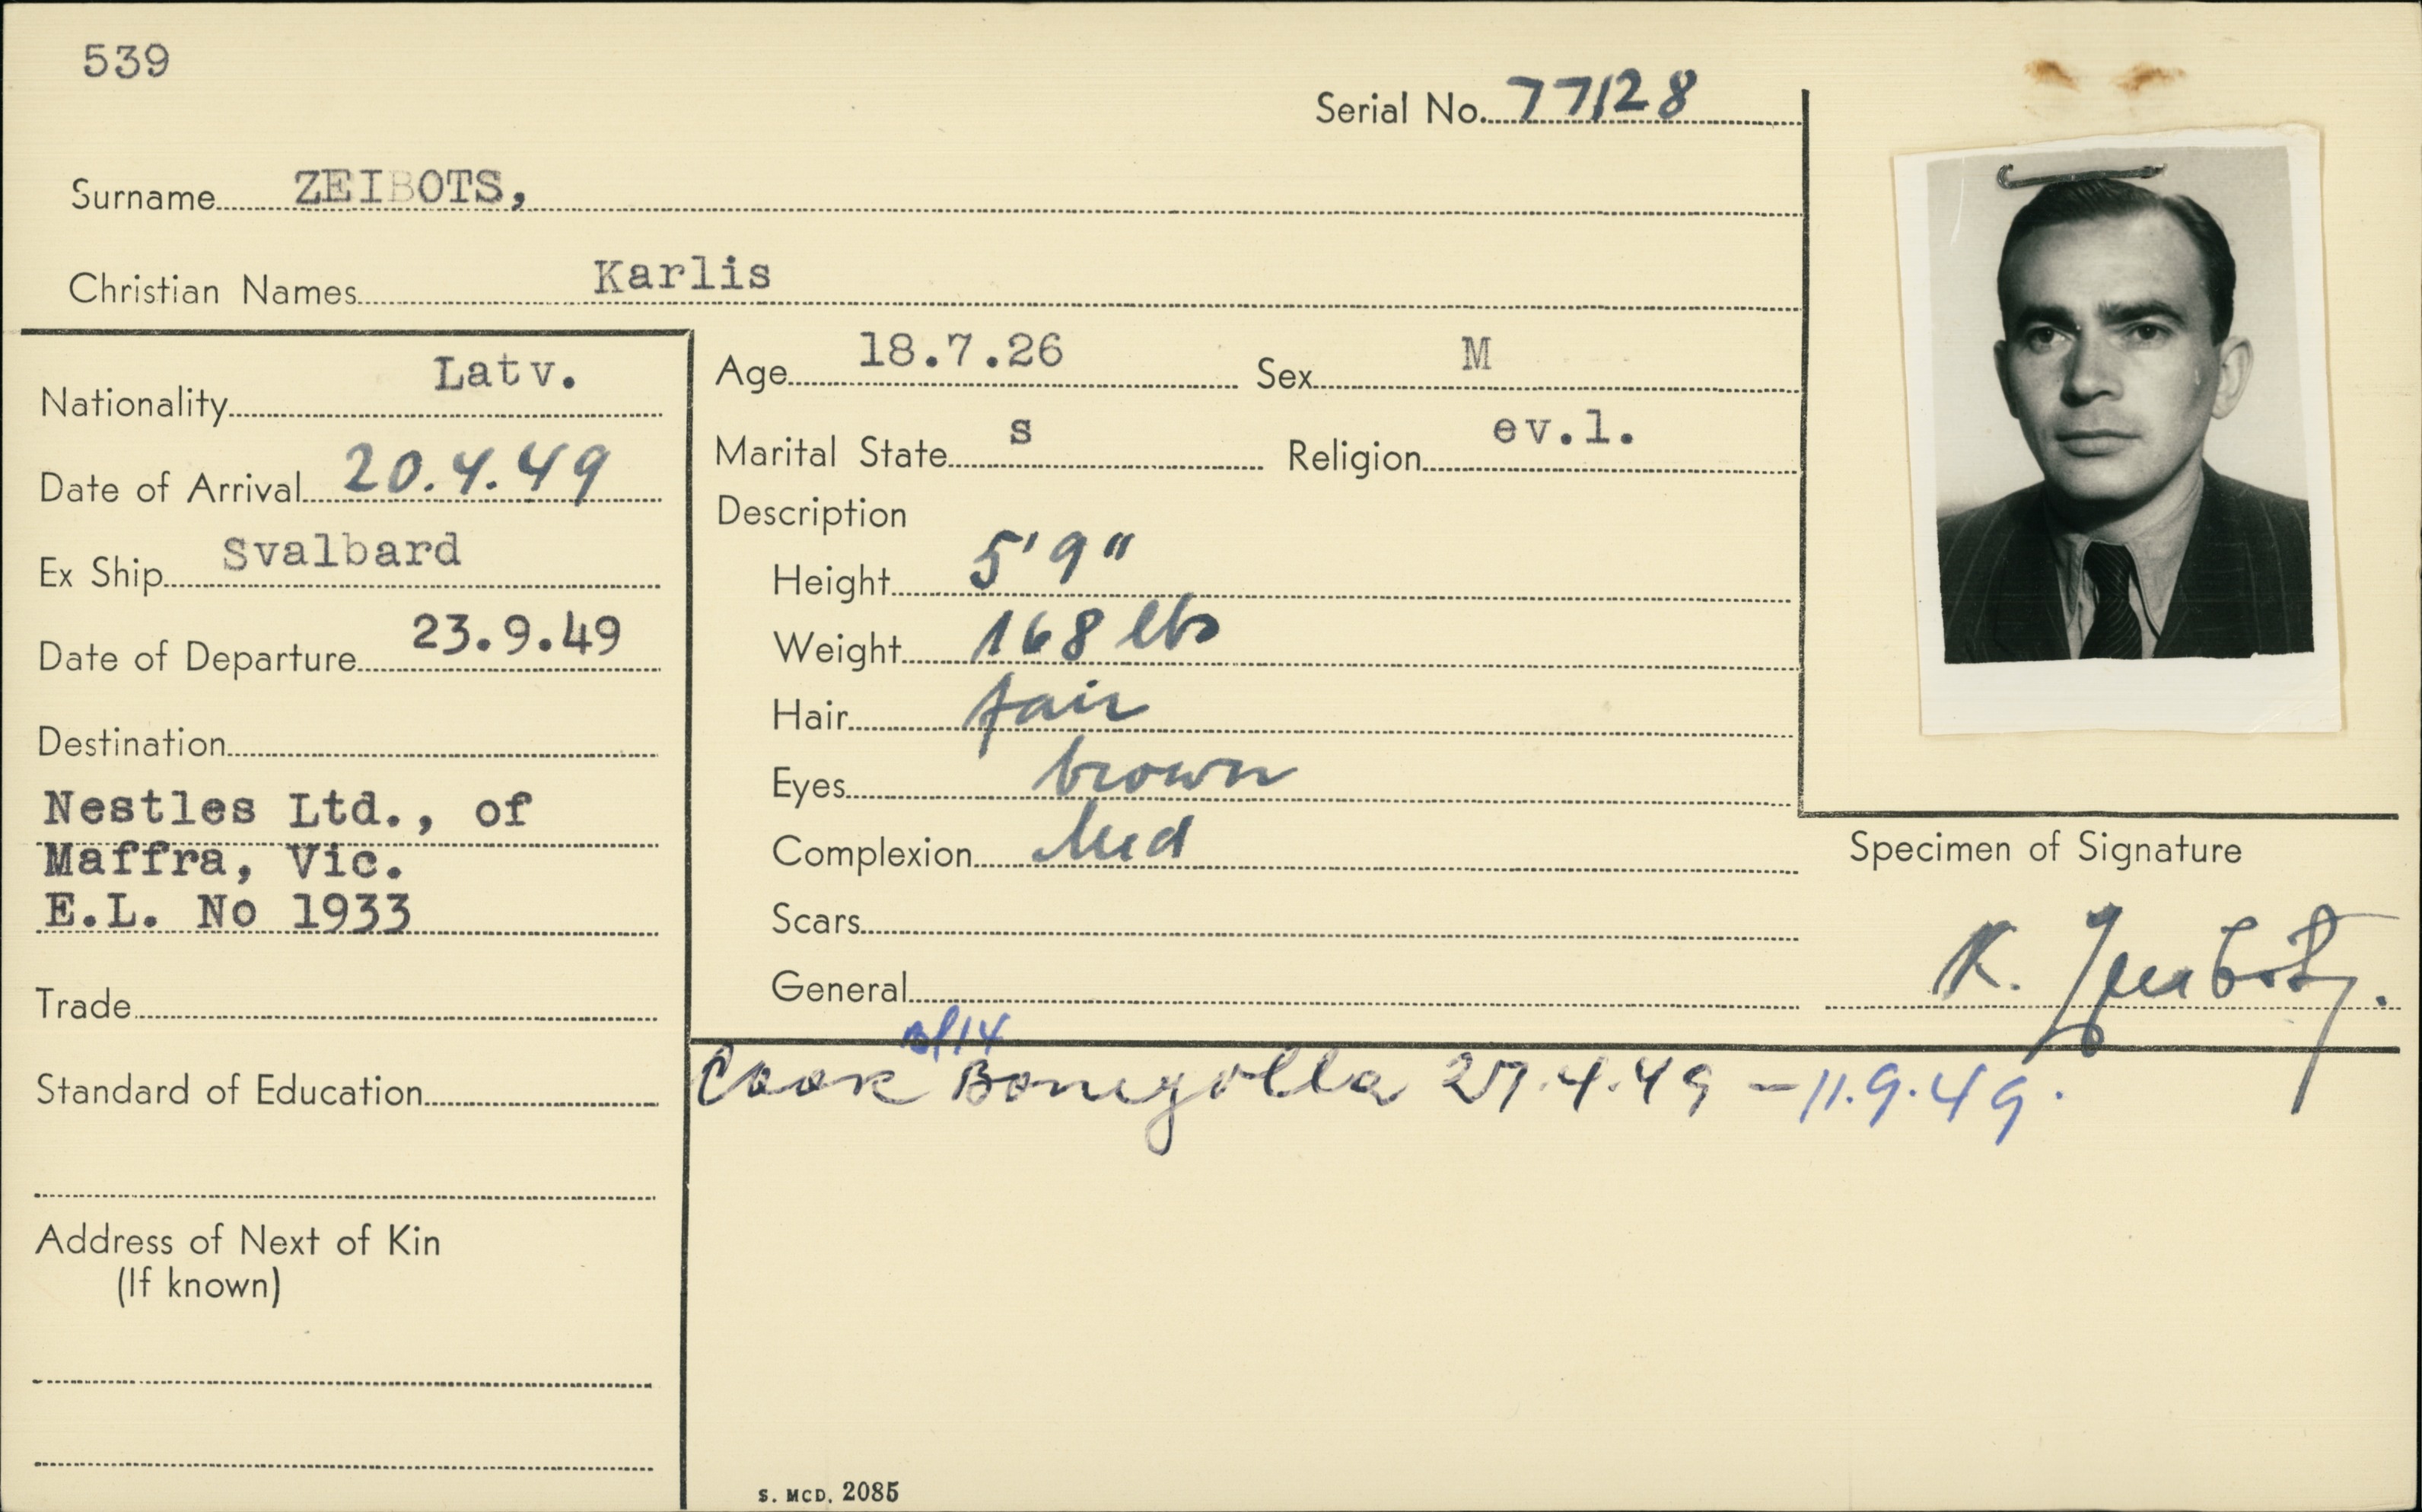 539
Serial No. 77128
Surname ZEIBOTS,
Christian Names Karlis
Nationality Latv.
Date of Arrival 20.4.49
Ex Ship Svalbard
Date of Departure 23.9.49
Destination
Nestles Ltd., of
Maffra, Vic.
E.L. No 1933
Trade
Standard of Education
Address of Next of Kin
(If known)
Age 18.7.26 Sex M
Marital State s Religion ev.l.
Description
Height 5'9"
Weight 168 lbs
Hair fair
Eyes brown
Complexion Med
Scars
General
Specimen of Signature
K. Zeibots.
Bl14
Cook Bonegolla 27.4.49 - 11.9.49.
S. MCD. 2085